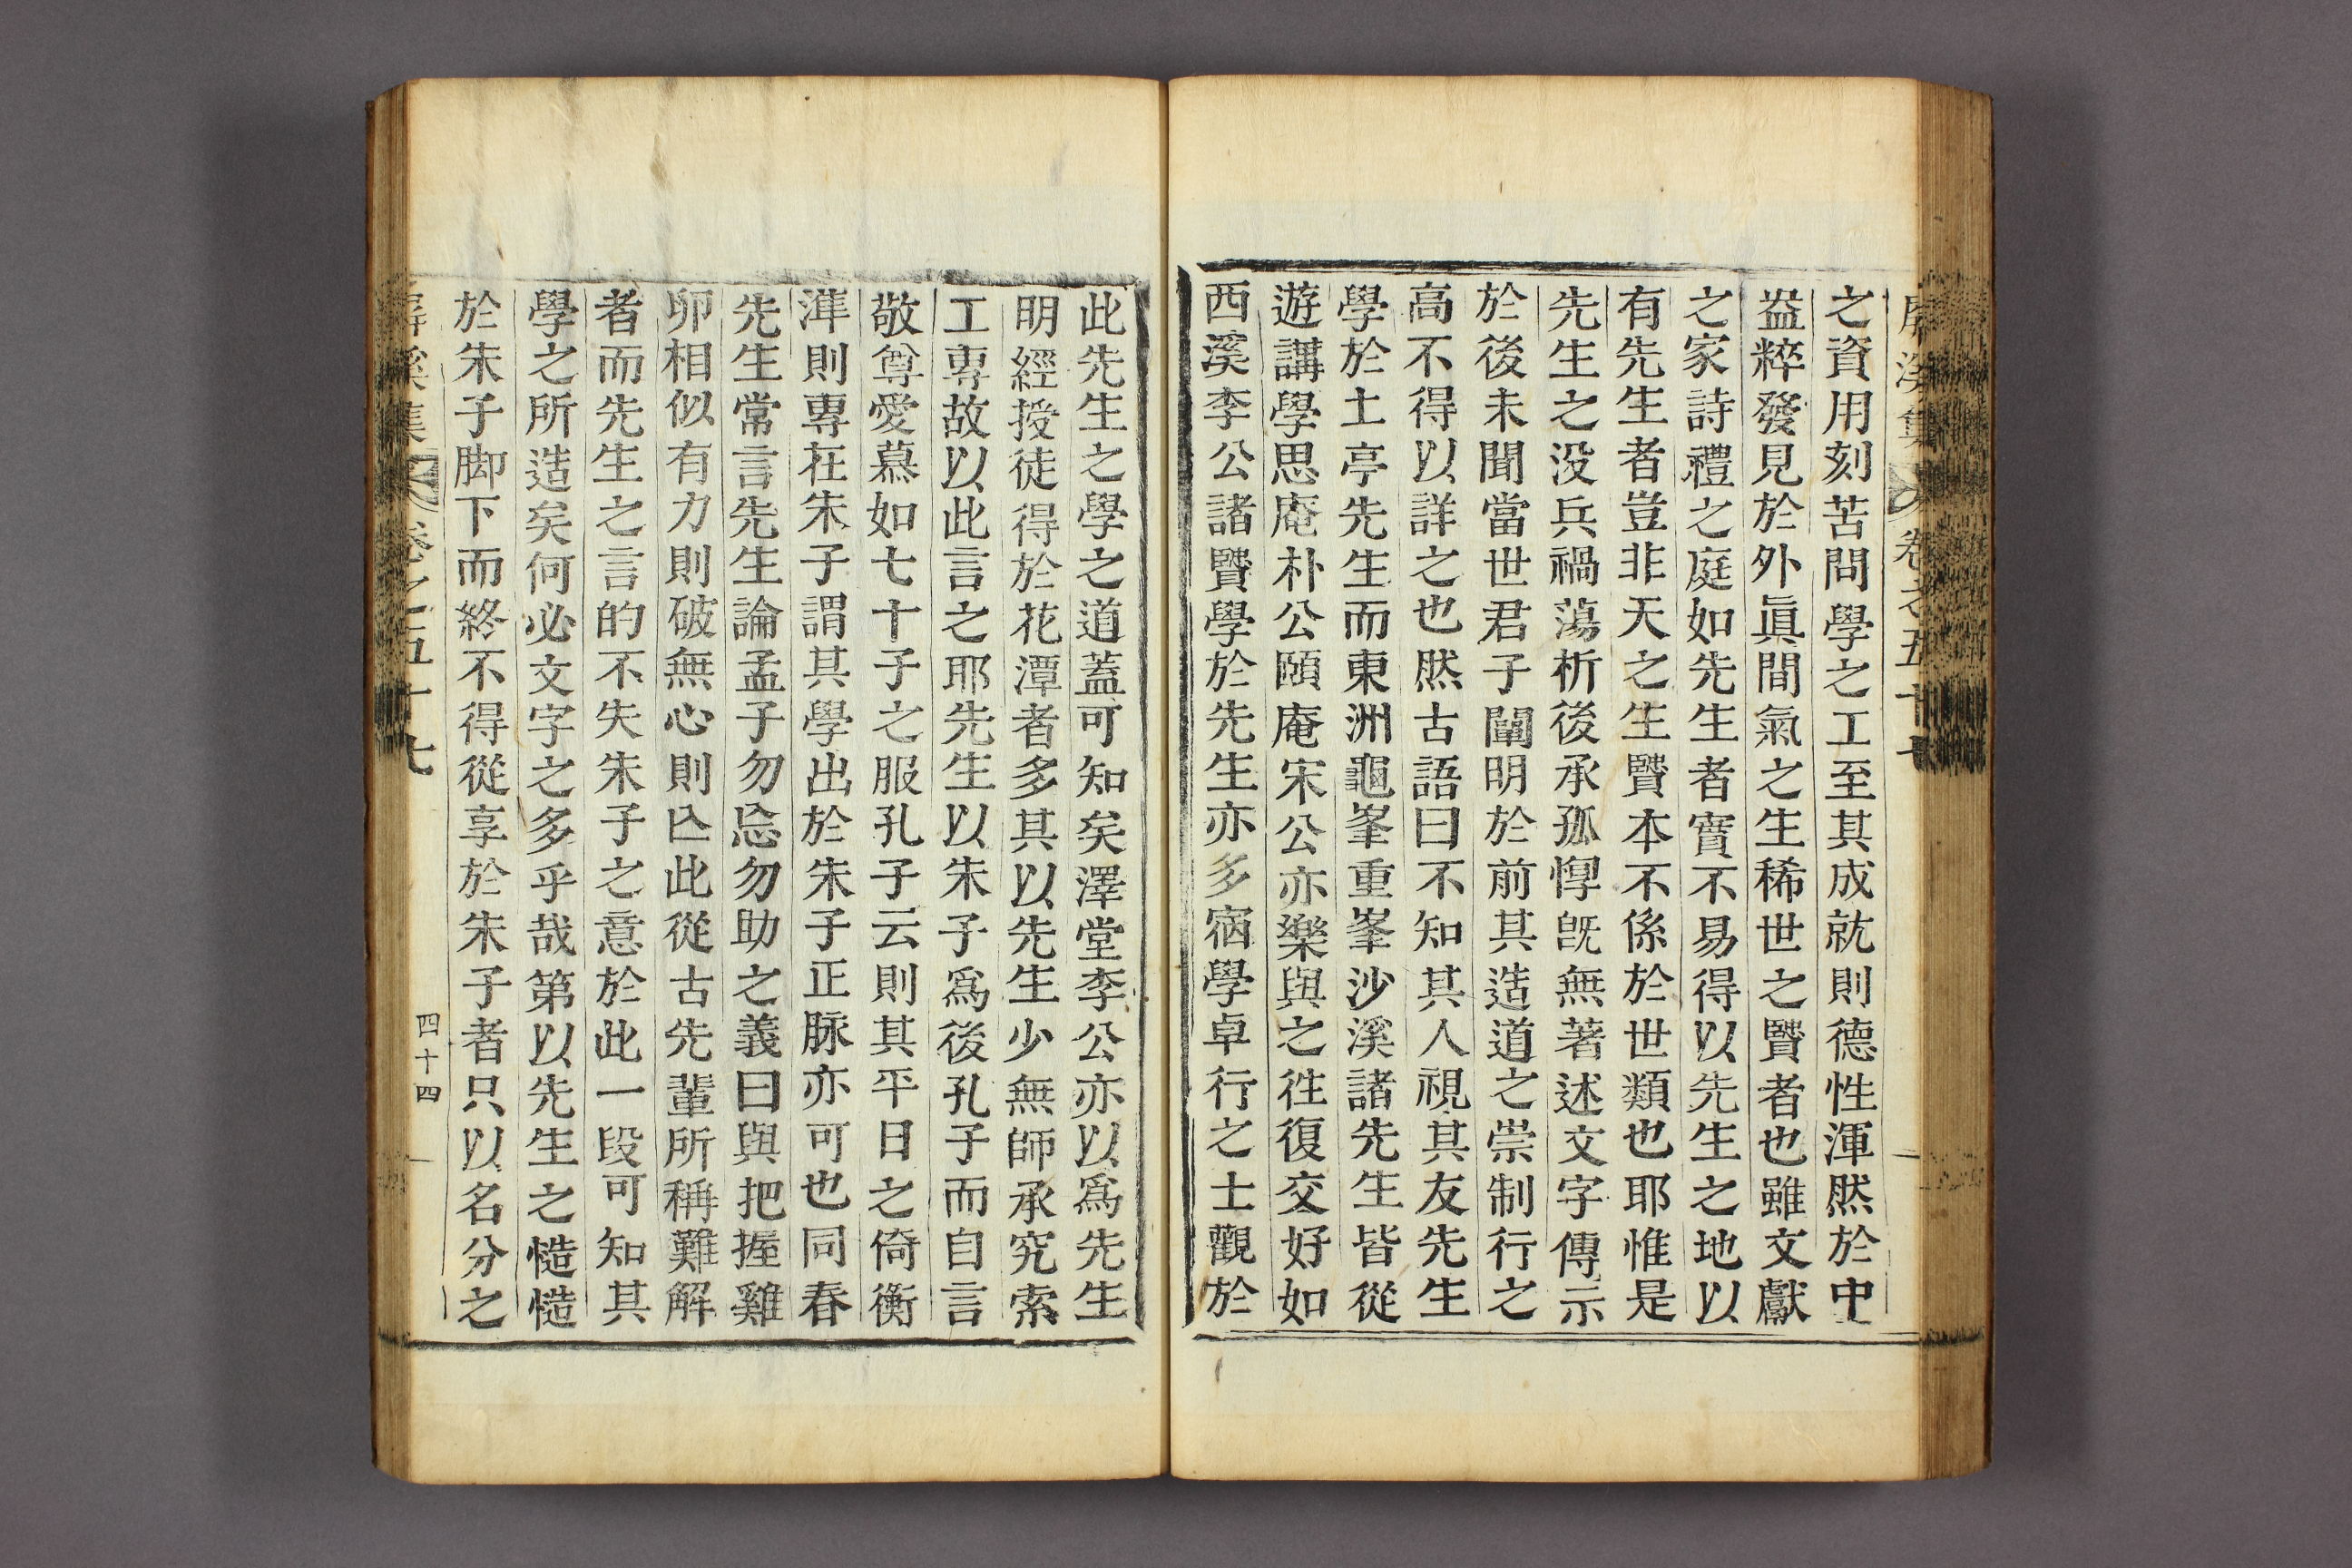 屏溪集 卷之五十七
之資用刻苦問學之工至其成就則德性渾然於中
盎粹發見於外眞間氣之生稀世之賢者也雖文獻
之家詩禮之庭如先生者實不易得以先生之地以
有先生者豈非天之生賢本不係於世類也耶惟是
先生之没兵禍蕩析後承孤惸旣無著述文字傳示
於後未聞當世君子闡明於前其造道之崇制行之
高不得以詳之也然古語曰不知其人視其友先生
學於土亭先生而東洲龜峯重峯沙溪諸先生皆從
遊講學思庵朴公頤庵宋公亦樂與之徃復交好如
西溪李公諸賢學於先生亦多宿學卓行之士觀於
此先生之學之道蓋可知矣澤堂李公亦以爲先生
明經授徒得於花潭者多其以先生少無師承究索
工專故以此言之耶先生以朱子爲後孔子而自言
敬尊愛慕如七十子之服孔子云則其平日之倚衡
準則專在朱子謂其學出於朱子正脉亦可也同春
先生常言先生論孟子勿忘勿助之義曰與把握雞
卵相似有力則破無心則亾此從古先輩所稱難解
者而先生之言的不失朱子之意於此一段可知其
學之所造矣何必文字之多乎哉第以先生之慥慥
於朱子脚下而終不得從享於朱子者只以名分之
屏溪集 卷之五十七 四十四